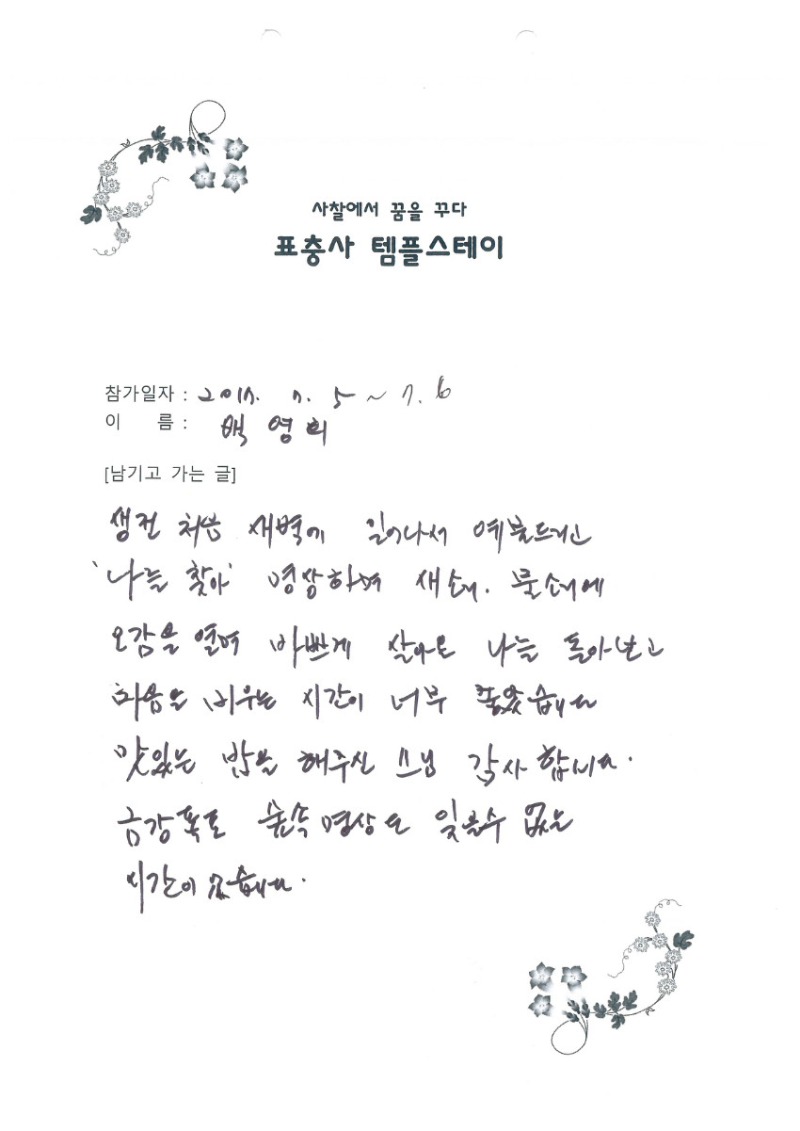 사찰에서 꿈을 꾸다
표충사 템플스테이
참가일자 : 2017. 7. 5 ~ 7. 6
이 름 : 백영희
[남기고 가는 글]
생전 처음 새벽에 일어나서 예불드리고
'나를 찾아' 명상하며 새소리. 물소리에
오감을 열며 바쁘게 살아온 나를 돌아보고
마음을 비우는 시간이 너무 좋았습니다
맛있는 밥을 해주신 스님 감사합니다.
금강폭포 숲속명상도 잊을수 없는
시간이 었습니다.